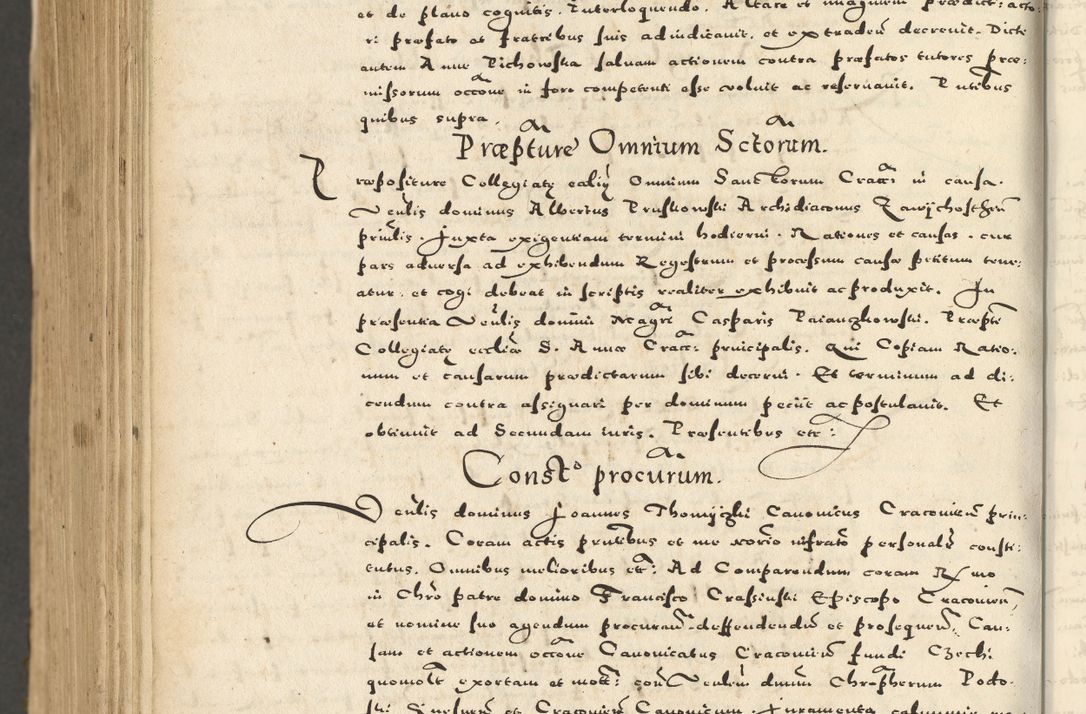 et de plano cognitis. Interloquendo. Altare et imaginem prædict: acto:
ri præfato et fratribus suis adiudicauit. et extradeñ decreuit. Dicte
autem Anne Pichowska saluam actionem contra præfatos tutores præ:
missorum occõne in foro competenti esse voluit ac reseruauit. Pntibus
quibus supra.
Præpture Omnium Sctorum.
Præpositure Collegiatę ecalię Omnium Sanctorum Cracci in causa.
Venlis dominus Albertus Pruskowski Archidiaconus Zawychosteñ
prinlis. Juxta exigentiam termini hodierni. Rationes et causas. cur
pars aduersa ad exhibendum Regestrum et processum causæ petitum tene:
atur. et cogi debeat in scriptis realiter exhibuit ac produxit. In
præsentia Venlis domini Magri Casparis Paianczkowski. Præpti
Collegiatę eccliæ S. Annæ Cracc: principalis. Qui Copiam Ratio:
num et causarum prædictarum sibi decerni. Et terminum ad di:
cendum contra assignari per dominum petiit ac postulauit. Et
obtinuit ad Secundam iuris. Præsentibus etc:
Constº procurum.
Venlis dominus Joannes Thomyczki Canonicus Cracouieñ prin:
cipalis. Coram actis pntibus et me notorio infrato personalr consti:
tutus. Omnibus melioribus etc: Ad Comparendum coram Rmo
in Chro patre domino Francisco Crassinski Episcopo Cracouieñ,
et nomine suo agendum procurañ deffendendũ et prosequeñ. Cau:
sam et actionem occõne Canonicatus Cracouieñ fundi Czechi
quomolt exortam et mott: con Venlem dnum Chrpherum Podo:
ski Gnesneñ et Cracouieñ Canonicum. Juramenta calumnie